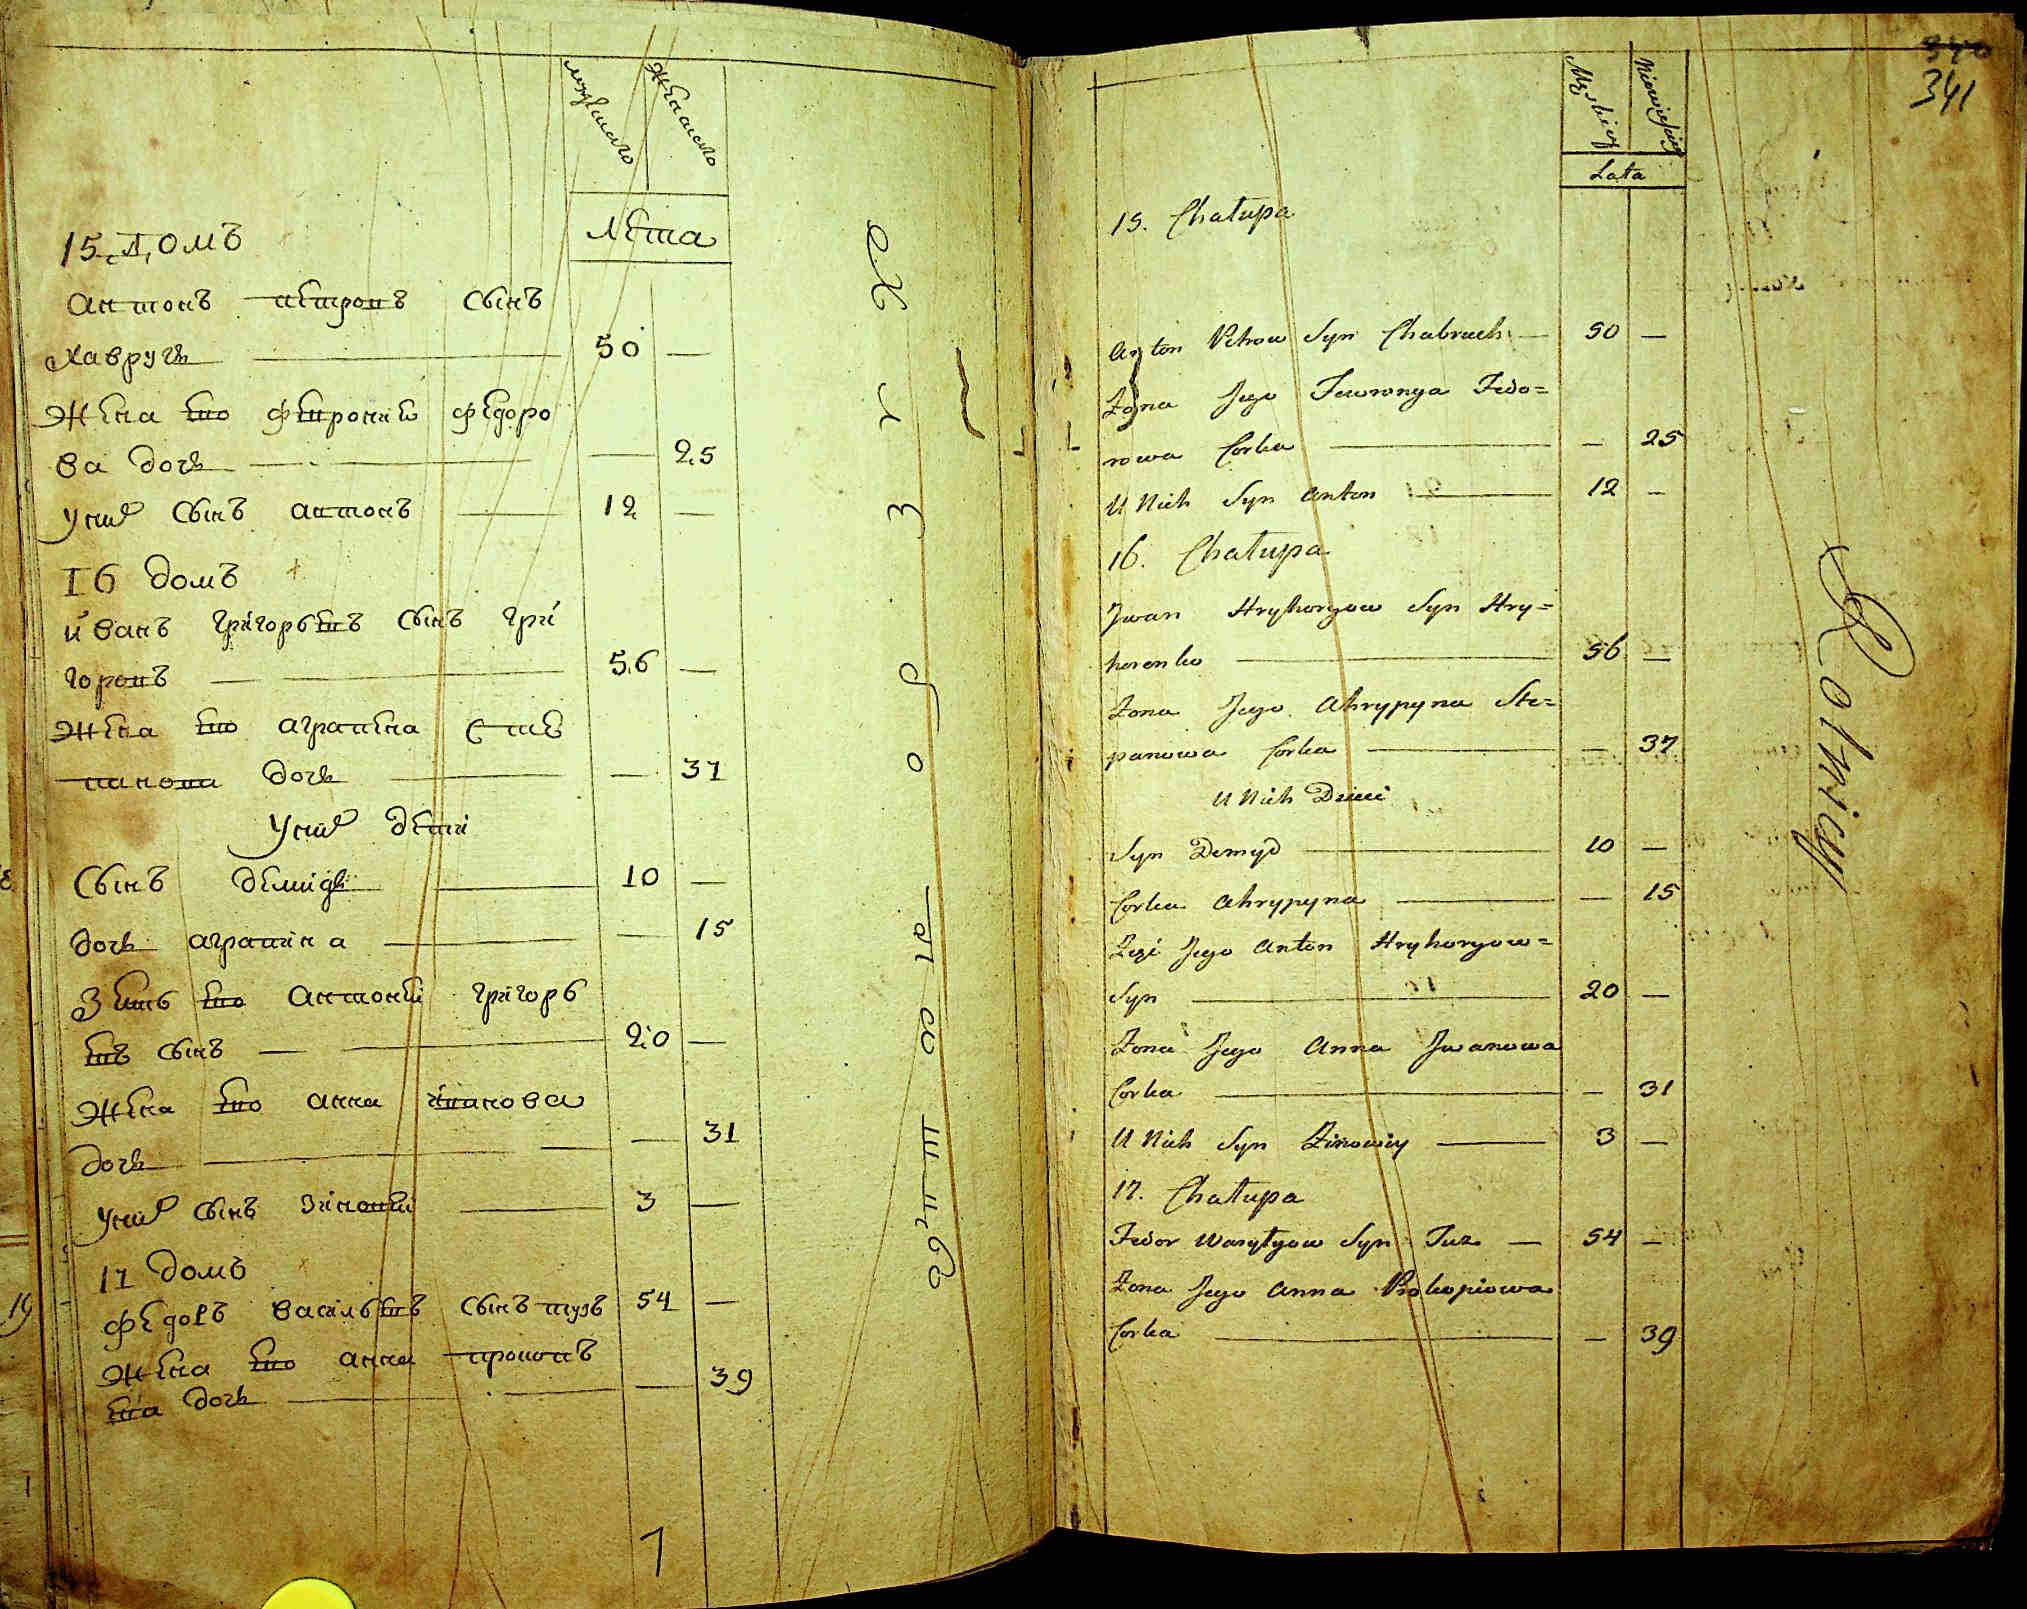 мужеска͠го женска͠го
лета
15 домъ
антонъ петровъ сынъ
хавручъ 50 —
жена ево феврония федоро
ва дочь — 25
унихъ сынъ антонъ 12 —
16 домъ
иванъ григорьевъ сынъ гри
горовъ 56 —
жена ево аграпена сте
панова дочь — 37
унихъ дети
сынъ демидъ 10 —
дочь аграпина — 15
зеть ево антоней григорь
евъ сынъ 20 —
жена ево анна иванова
дочь — 31
унихъ сынъ зиновей 3 —
17 домъ
федоръ васильевъ сынъ тузъ 54 —
жена ево анна прокопь
ева дочь — 39
7
341
Męskiey Niewieściey
Lata
15. Chałupa
Anton Petrow Syn Chabruch — 50 —
Żona Jego Fewronya Fedo=
rowa Corka — 25
U Nich Syn Anton 12 —
16. Chałupa
Jwan Hryhoryow Syn Hry=
horenko 56 —
Żona Jego Ahrypyna Ste=
panowa Corka — 37
U Nich Dzieci
Syn Demyd 10 —
Corka Ahrypyna — 15
Zęć Jego Anton Hryhoryow=
Syn 20 —
Żona Jego Anna Jwanowa
Corka — 31
U Nich Syn Zinowiy 3 —
17. Chałupa
Fedor Wasylyow Syn Tuz — 54 —
Żona Jego Anna Prokopiowa
Corka — 39
Rotnicy